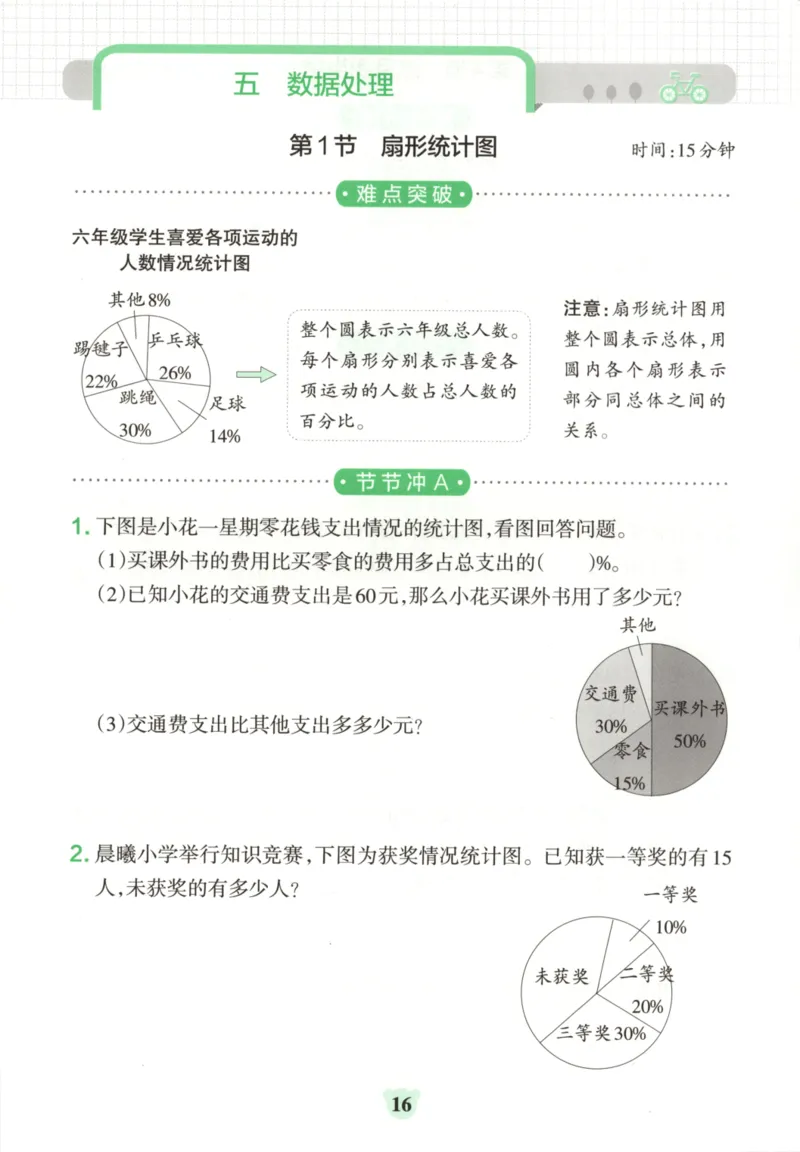 五 数据处理
第1节 扇形统计图
时间:15分钟
·难点突破·
六年级学生喜爱各项运动的
人数情况统计图
其他8%
踢毽子
22%
乒乓球
26%
跳绳
30%
足球
14%
整个圆表示六年级总人数。
每个扇形分别表示喜爱各
项运动的人数占总人数的
百分比。
注意:扇形统计图用
整个圆表示总体,用
圆内各个扇形表示
部分同总体之间的
关系。
·节节冲A·
1. 下图是小花一星期零花钱支出情况的统计图,看图回答问题。
(1)买课外书的费用比买零食的费用多占总支出的( )%。
(2)已知小花的交通费支出是60元,那么小花买课外书用了多少元?
其他
交通费
30%
买课外书
50%
零食
15%
(3)交通费支出比其他支出多多少元?
2. 晨曦小学举行知识竞赛,下图为获奖情况统计图。已知获一等奖的有15
人,未获奖的有多少人?
一等奖
10%
未获奖
二等奖
20%
三等奖30%
16